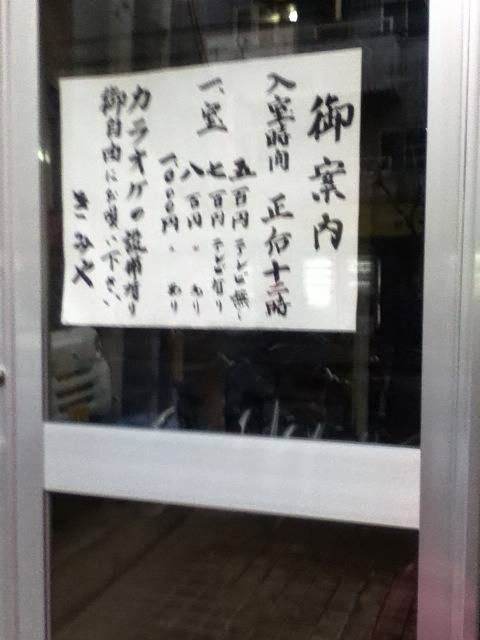 御案内
入室時間 正右十二時
一、室 五百円 テレビ無し
七百円 テレビ有り
八百円 〃 あり
一、〇〇〇円 〃 あり
カラオケの設備有り
御自由にお唄い下さい